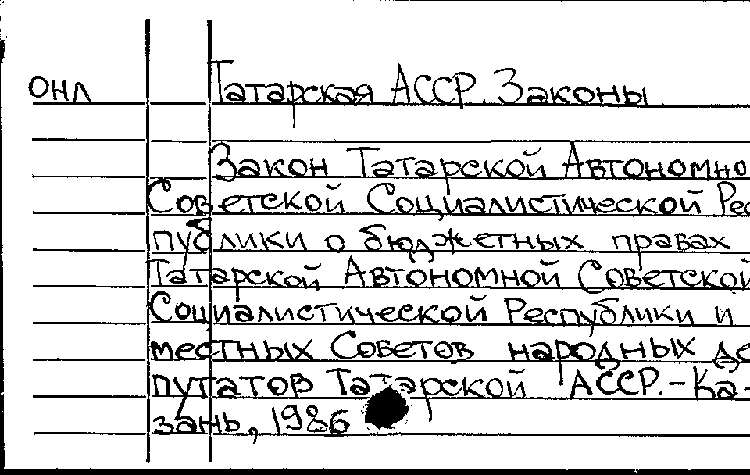 ОНЛ Татарская АССР. Законы
Закон Татарской Автономно
Советской Социалистической Рес
публики о бюджетных правах
Татарской Автономной Советской
Социалистической Республики и
местных Советов народных де
путатов Татарской АССР.-Ка-
зань, 1986